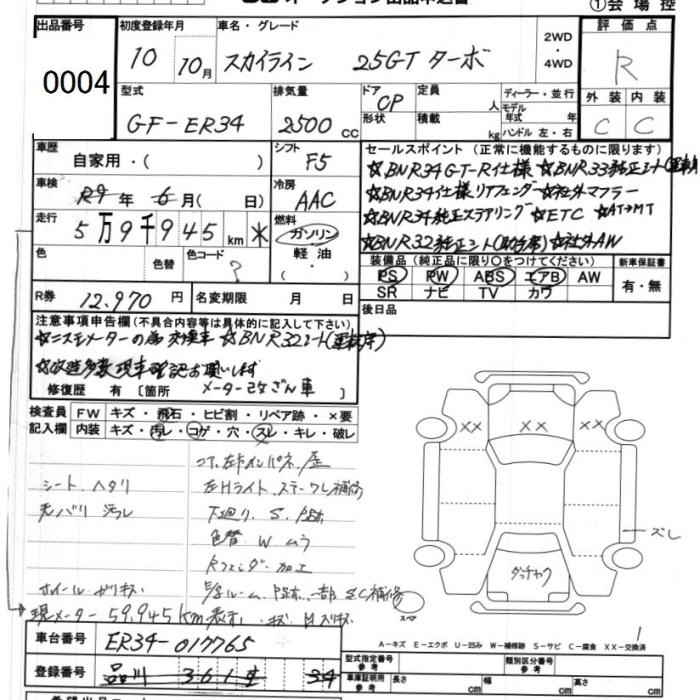 出品番号 初度登録年月 車名・グレード 2WD・4WD 評価点
0004 10 10月 スカイライン 25GT ターボ R
型式 排気量 ドア CP 形状 定員 人 積載 kg ディーラー・並行 モデル 年式 年 ハンドル 左・右 外装 内装
GF-ER34 2500 cc C C
車歴 自家用・( ) シフト F5
セールスポイント (正常に機能するものに限ります)
☆BNR34GT-R仕様 ☆BNR33純正シート(運転席)
☆BNR34仕様リアフェンダー ☆社外マフラー
☆BNR34純正ステアリング ☆ETC ☆AT→MT
☆BNR32純正シート(助手席) ☆社外AW
車検 R9年 6月( 日) 冷房 AAC
走行 5万9千945km * 燃料 ガソリン・軽油・( )
色 色替 色コード ?
装備品 (純正品に限り○をつけてください) 新車保証書
PS PW ABS エアB AW 有・無
SR ナビ TV カワ
R券 12,970円 名変期限 月 日 後日品
注意事項申告欄 (不具合内容等は具体的に記入して下さい)
☆ニスモメーターの為交換車 ☆BNR32シート(運転席)
☆改造多数現車確認お願いします
修復歴 有 [箇所 メーター改ざん車 ]
検査員 FW キズ・飛石・ヒビ割・リペア跡・×要
記入欄 内装 キズ・汚レ・コゲ・穴・スレ・キレ・破レ
XX XX
コア、左右インパネ、歪
シート ヘタリ 左Hライト、ステーワレ補修
天バリ 汚レ 下廻り、S、凸跡
色替 W ムラ
Rフェンダー 加工
ズレ
ダッチャク
ホイール ガリキズ
現メーター 59,945km表示
スペア
A-キズ E-エクボ U-凹み W-補修跡 S-サビ C-腐食 XX-交換済
車台番号 ER34-017765
型式指定番号 参考 類別区分番号 参考
登録番号 品川 361 34
車庫証明用 参考 長さ cm 幅 cm 高さ cm